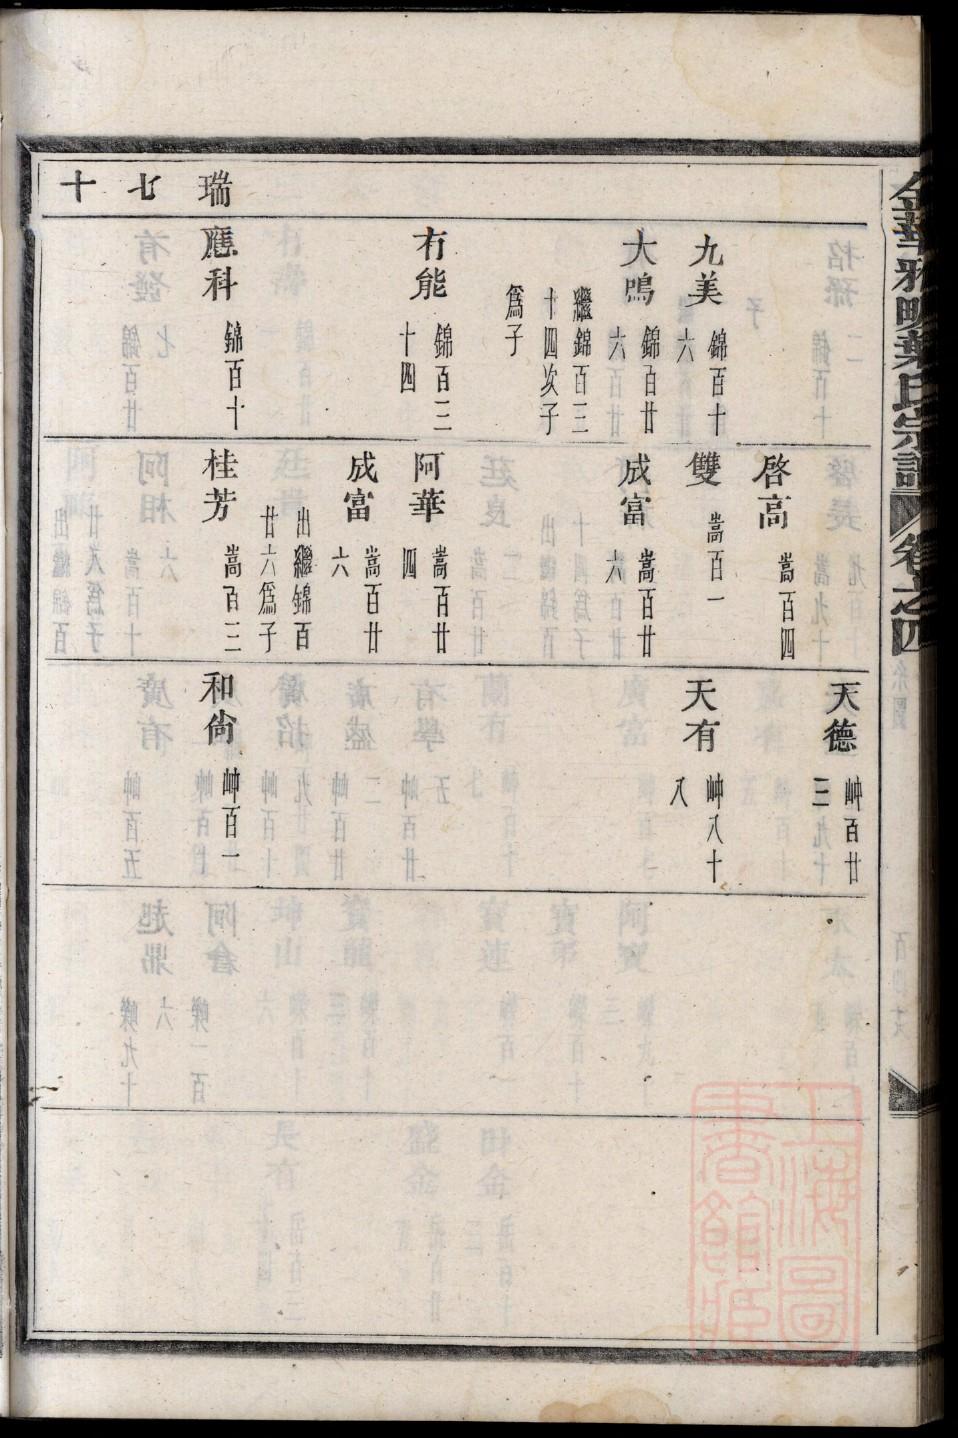 金華雅畈葉氏宗譜 卷之四
瑞
九美 錦百十六
大鳴 錦百廿六
繼錦百三十四次子爲子
有能 錦百三十四
應科 錦百十
啓高 嵩百四
雙 嵩百一
成富 嵩百廿六
阿華 嵩百廿四
成富 嵩百廿六
出繼錦百廿六爲子
桂芳 嵩百三
天德 岫百廿三
天有 岫八十八
和尙 岫百一
上海圖書館藏